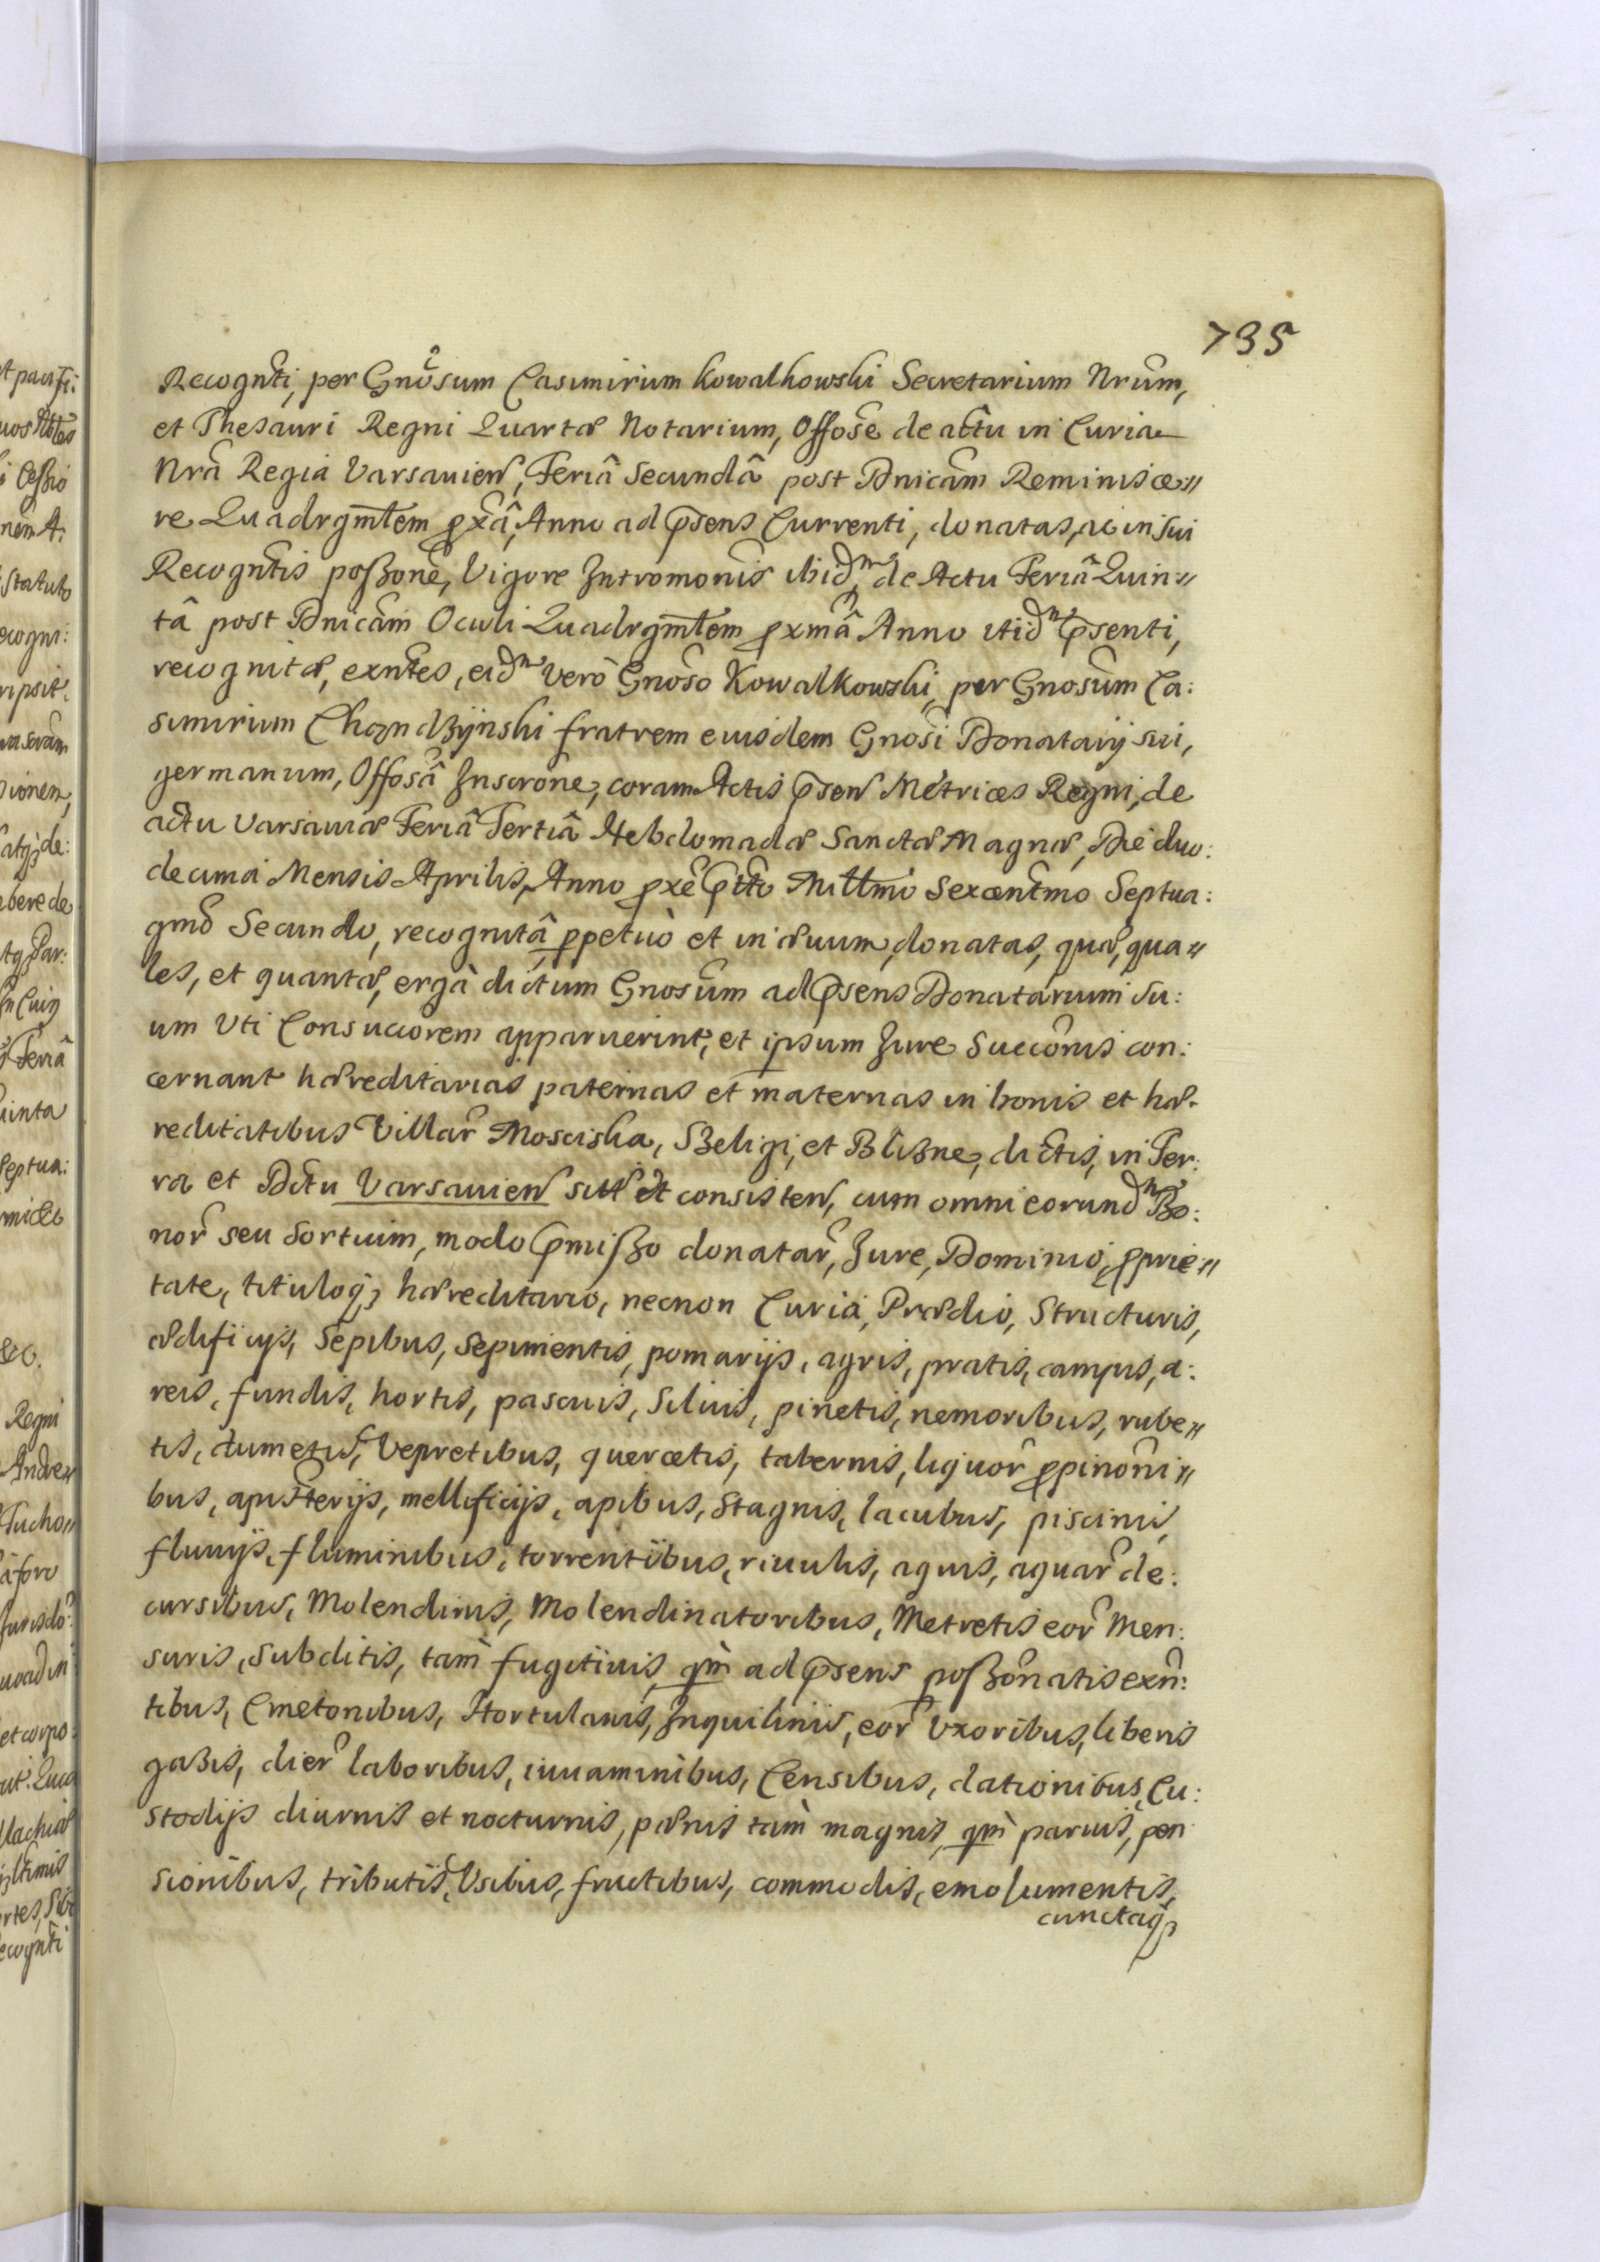 735
Recognti, per Gnosum Casimirum Kowalkowski Secretarium Nrum,
et Thesauri Regni Quartæ Notarium, Offose de actu in Curia
Nra Regia Varsavien, Feriâ Secundâ post Dnicam Reminisce〃
re Quadrgmlem pxâ, Anno ad psens Currenti, donatas, ac in sui
Recogntis poßone, Vigore Intromonis ibidm de Actu Feriâ Quin〃
tâ post Dnicam Oculi Quadrgmlem pxmâ Anno itidm psenti,
recognitæ, exntes, eidm verò Gnoso Kowalkowski, per Gnosum Ca:
simirium Chądzyński fratrem eiusdem Gnosi Donatarij sui,
germanum, Offosâ Inscrone, coram Actis psen Metrices Regni, de
actu Varsaviæ Feriâ Tertiâ Hebdomadæ Sanctæ Magnæ, Die duo:
decima Mensis Aprilis, Anno pxe ptto Millmo Sexcentmo Septua:
gmo Secundo, recognitâ, ppetuò et in ævum, donatas, quæ, qua〃
les, et quantæ, ergà dictum Gnosum ad psens Donatarium su:
um Uti Consucorem apparuerint, et ipsum Jure Succonis con:
cernant hæreditarias paternas et maternas in bonis et hæ.
reditatibus Villar Mosciska, Szeligi, et Blizne, dictis, in Ter:
ra et Dctu Varsavien sitt et consisten, cum omni eorundm Bo:
nor seu Sortium, modo pmißo donatar, Jure, Dominio, pprie〃
tate, tituloq3 hæreditario, necnon Curia, Prædio, Structuris,
ædificijs, Sepibus, Sepimentis, pomarijs, agris, pratis, campis, a:
reis, fundis, hortis, pascuis, Silvis, pinetis, nemoribus, rube〃
tis, dumetis, Vepretibus, quercetis, tabernis, liquor ppinoni〃
bus, apisterijs, mellificijs, apibus, Stagnis, lacubus, piscinis,
fluvijs, fluminibus, torrentibus, rivulis, aquis, aquar de:
cursibus, Molendinis, Molendinatoribus, Metretis eor Men:
suris, Subditis, tam fugitivis, qm ad psens poßonatis exn:
tibus, Cmetonibus, Hortulanis, Inquilinis, eor Uxoribus, liberis
gazis, dier laboribus, iuvaminibus, Censibus, dationibus, Cu:
stodijs diurnis et nocturnis, pænis tam magnis, qm parvis, pen
sionibus, tributis, Usibus, fructibus, commodis, emolumentis,
cunctaq3